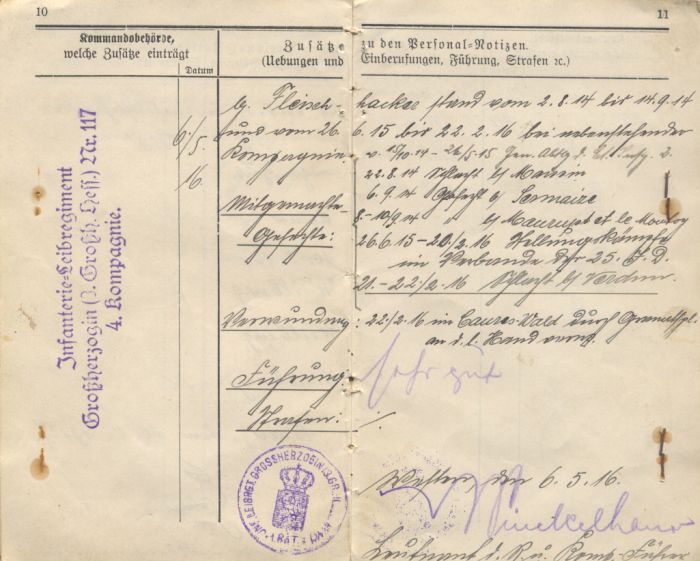 10
11
Kommandobehörde, welche Zusätze einträgt
Datum
Zusätze zu den Personal-Notizen.
(Uebungen und Einberufungen, Führung, Strafen ꝛc.)
Infanterie-Leibregiment
Großherzogin (3. Großh. Hess.) Nr. 117
4. Kompagnie.
6./5. 16.
Fleischhacker stand vom 2.8.14 bis 14.9.14
und vom 26.6.15 bis 22.2.16 bei nebenstehender
Kompagnie.
22.8.14 Schlacht b/ Maissin
Mitgemachte Gefechte:
6.9.14 Gefecht b/ Sermaize
8-10/9.14 b/ Maurupt et le Montoy
26.6.15-20/2.16 Stellungskämpfe
im Verbande der 25. I.D.
21.-22/2.16 Schlacht b/ Verdun.
Verwundung: 22/2.16 im Caures Wald durch Granatspl.
an d. l. Hand verw.
Führung: sehr gut
Strafen: ./.
den 6.5.16.
Leutnant d. R. u. Komp.-Führer